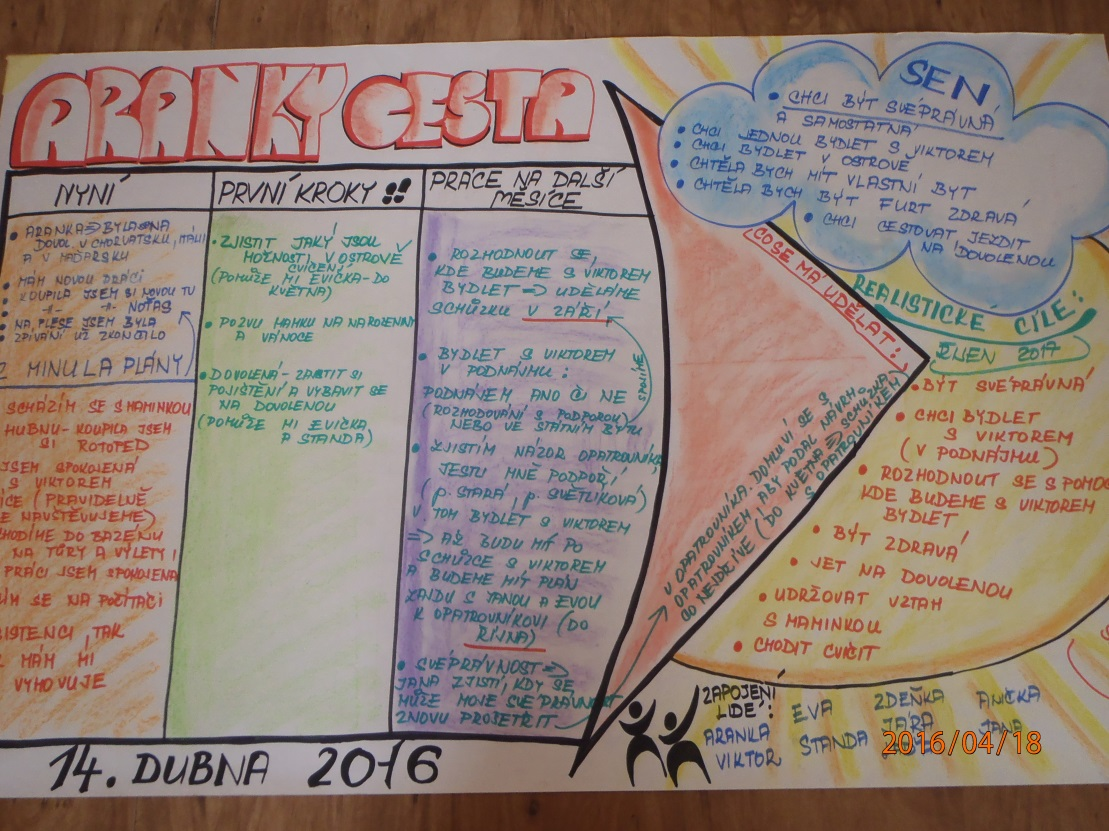 ARANKY CESTA
NYNÍ
ARANKA => BYLA NA
DOVOL. V CHORVATSKU, ITÁLII
A V MAĎARSKU
MÁM NOVOU PRÁCI
KOUPILA JSEM SI NOVOU TV
-11- -11- NOTAS
NA PLESE JSEM BYLA
ZPÍVÁNÍ UŽ ZKONČILO
Z MINULA PLÁNY
SCHÁZÍM SE S MAMINKOU
HUBNU - KOUPILA JSEM
SI ROTOPED
JSEM SPOKOJENÁ
S VIKTOREM
(PRAVIDELNĚ
SE NAVŠTĚVUJEME)
CHODÍME DO BAZÉNU
NA TŮRY A VÝLETY!
PRÁCI JSEM SPOKOJENA
SE NA POČÍTAČI
TAK
MÁM MI
VYHOVUJE
PRVNÍ KROKY
ZJISTIT JAKÝ JSOU
MOŽNOSTI V OSTROVĚ
CVIČENÍ
(POMŮŽE MI EVIČKA - DO
KVĚTNA)
POZVU HANKU NA NAROZENINY
A VÁNOCE
DOVOLENÁ - ZAJISTIT SI
POJIŠTĚNÍ A VYBAVIT SE
NA DOVOLENOU
(POMŮŽE MI EVIČKA,
P. STANDA)
PRÁCE NA DALŠÍ
MĚSÍCE
ROZHODNOUT SE,
KDE BUDEME S VIKTOREM
BYDLET => UDĚLÁME
SCHŮZKU V ZÁŘÍ
BYDLET S VIKTOREM
V PODNÁJMU:
PODNÁJEM ANO Č NE
(ROZHODOVÁNÍ S PODPOROU)
NEBO VE STÁTNÍM BYTU
ZJISTÍM NÁZOR OPATROVNÍKA
JESTLI MNĚ PODPOŘÍ
(p. STARÁ, p. SVĚTLÍKOVÁ)
V TOM BYDLET S VIKTOREM
=> AŽ BUDU MÍT PO
SCHŮZCE S VIKTOREM
A BUDEME MÍT PLÁN
ZAJDU S JANOU A EVOU
K OPATROVNÍKOVI (DO
ŘÍJNA)
SVÉPRÁVNOST =>
JANA ZJISTÍ, KDY SE
MŮŽE MOJE SVÉPRÁVNOST
ZNOVU PROŠETŘIT
CO SE MÁ UDĚLAT:
U OPATROVNÍKA. DOMLUVÍ SE S
OPATROVNÍKEM, ABY PODAL NÁVRH
CO NEJDŘÍVE (DO KVĚTNA => SCHŮZKA
S OPATROVNÍKEM)
SEN
CHCI BÝT SVÉPRÁVNÁ
A SAMOSTATNÁ
CHCI JEDNOU BYDLET S VIKTOREM
CHCI BYDLET V OSTROVĚ
CHTĚLA BYCH MÍT VLASTNÍ BYT
CHTĚLA BYCH BÝT FURT ZDRAVÁ
CHCI CESTOVAT JEZDIT
NA DOVOLENOU
REALISTICKÉ CÍLE:
ŘÍJEN 2017
BÝT SVÉPRÁVNÁ
CHCI BYDLET
S VIKTOREM
(V PODNÁJMU)
ROZHODNOUT SE S POMOC
KDE BUDEME S VIKTOREM
BYDLET
BÝT ZDRAVÁ
JET NA DOVOLENOU
UDRŽOVAT VZTAH
S MAMINKOU
CHODIT CVIČIT
ZAPOJENÍ
LIDÉ:
ARANKA
VIKTOR
EVA
STANDA
ZDEŇKA
JÁRA
ANIČKA
JANA
14. DUBNA 2016
2016/04/18